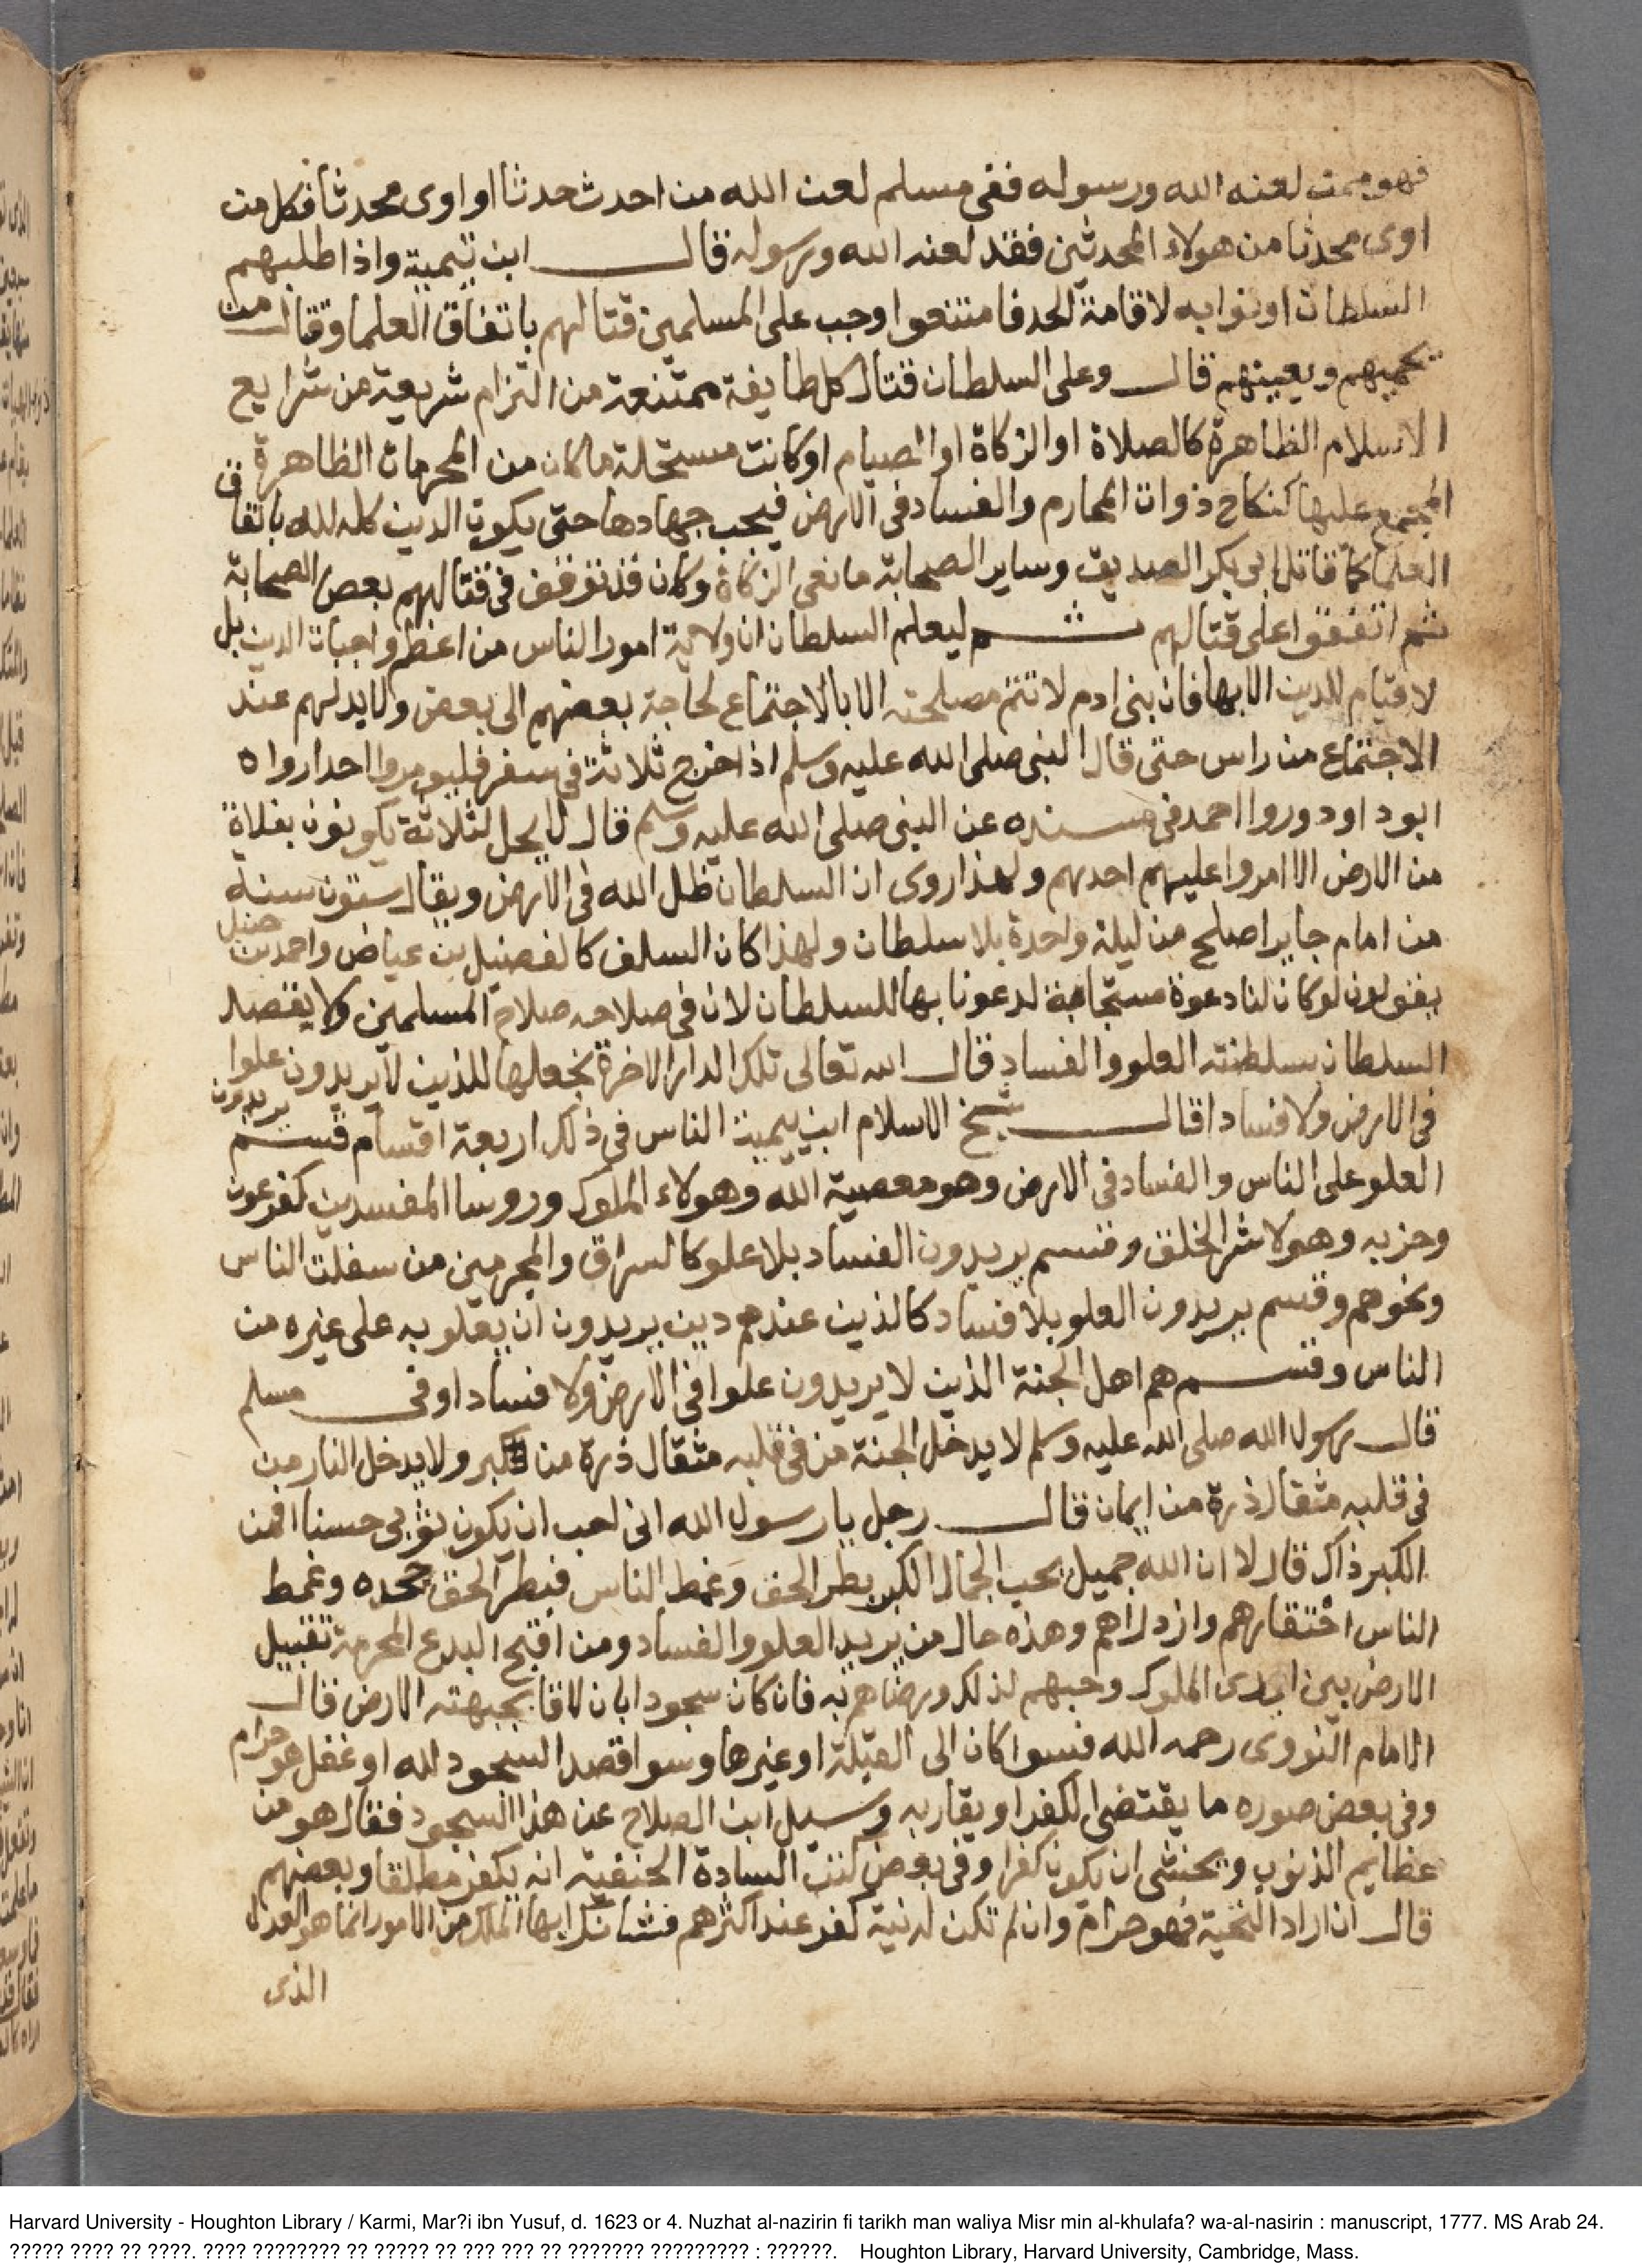 فهو ممن لعنه الله ورسوله ففي مسلم لعن الله من احدث حدثا او اوى محدثا فكل من
اوى محدثا من هولاء المحدثين فقد لعنه الله ورسوله قال ابن تيمية واذا طلبهم
السلطان او نوابه لاقامة الحد فامتنعوا وجب على المسلمين قتالهم باتفاق العلما وقتال من
يحميهم ويعينهم قال وعلى السلطان قتال كل طايفة ممتنعة من التزام شريعة من شرايع
الاسلام الظاهرة كالصلاة او الزكاة او الصيام او كانت مستحلة ما كان من المحرمات الظاهرة
المجمع عليها كنكاح ذوات المحارم والفساد في الارض فيجب جهادها حتى يكون الدين كله لله باتفاق
العلما كما قاتل ابى بكر الصديق وساير الصحابة مانعي الزكاة وكان قد توقف في قتالهم بعض الصحابة
ثم اتفقوا على قتالهم ثم ليعلم السلطان ان ولاية امور الناس من اعظم واجبات الدين بل
لا قيام للدين الا بها فان بني ادم لا تتم مصلحته الا بالاجتماع لحاجة بعضهم الى بعض ولا بد لهم عند
الاجتماع من راس حتى قال النبي صلى الله عليه وسلم اذا خرج ثلاثة في سفر فليومروا احدا رواه
ابو داود وروا احمد في مسنده عن النبي صلى الله عليه وسلم قال لا يحل لثلاثة يكونون بفلاة
من الارض الا امروا عليهم احدهم ولهذا روى ان السلطان ظل الله في الارض ويقال ستون سنة
من امام جاير اصلح من ليلة واحدة بلا سلطان ولهذا كان السلف كالفضيل بن عياض واحمد بن حنبل
يقولون لو كان لنا دعوة مستجابة لدعونا بها للسلطان لان في صلاحه صلاح المسلمين ولا يقصد
السلطان بسلطنته العلو والفساد قال الله تعالى تلك الدار الاخرة نجعلها للذين لا يريدون علوا
في الارض ولا فسادا قال شيخ الاسلام ابن تيمية الناس في ذلك اربعة اقسام قسم يريدون
العلو على الناس والفساد في الارض وهو معصية الله وهولاء الملوك وروسا المفسدين كفرعون
وحزبه وهولا شر الخلق وقسم يريدون الفساد بلا علو كالسراق والمجرمين من سفلت الناس
ونحوهم وقسم يريدون العلو بلا فساد كالذين عندهم دين يريدون ان يعلو به على غيره من
الناس وقسم هم اهل الجنة الذين لا يريدون علوا في الارض ولا فسادا وفي مسلم
قال رسول الله صلى الله عليه وسلم لا يدخل الجنة من في قلبه مثقال ذرة من كبر ولا يدخل النار من
في قلبه مثقال ذرة من ايمان قال رجل يا رسول الله اني احب ان يكون ثوبي حسنا افمن
الكبر ذاك قال لا ان الله جميل يحب الجمال الكبر بطر الحق وغمط الناس فبطر الحق جحده وغمط
الناس احتقارهم وازدراهم وهذه حال من يريد العلو والفساد ومن اقبح البدع المحرمة تقبيل
الارض بين ايدى الملوك وحبهم لذلك ورضاهم به فان كان سجودا بان لاقا بجبهته الارض قال
الامام النووى رحمه الله فسوا كان الى القبلة او غيرها وسوا قصد السجود لله او غفل هو حرام
وفي بعض صوره ما يقتضي الكفر او يقاربه وسيل ابن الصلاح عن هذا السجود فقال هو من
عظايم الذنوب ويخشى ان يكون كفرا وفي بعض كتب السادة الحنفية انه يكفر مطلقا وبعضهم
قال ان اراد التحية فهو حرام وان لم تكن له نية كفر عند اكثرهم فشانك ايها الملك من الامور انما هو العدل
الذى
Harvard University - Houghton Library / Karmi, Mar?i ibn Yusuf, d. 1623 or 4. Nuzhat al-nazirin fi tarikh man waliya Misr min al-khulafa? wa-al-nasirin : manuscript, 1777. MS Arab 24.
????? ???? ?? ????. ???? ???????? ?? ????? ?? ??? ??? ?? ??????? ????????? : ??????. Houghton Library, Harvard University, Cambridge, Mass.